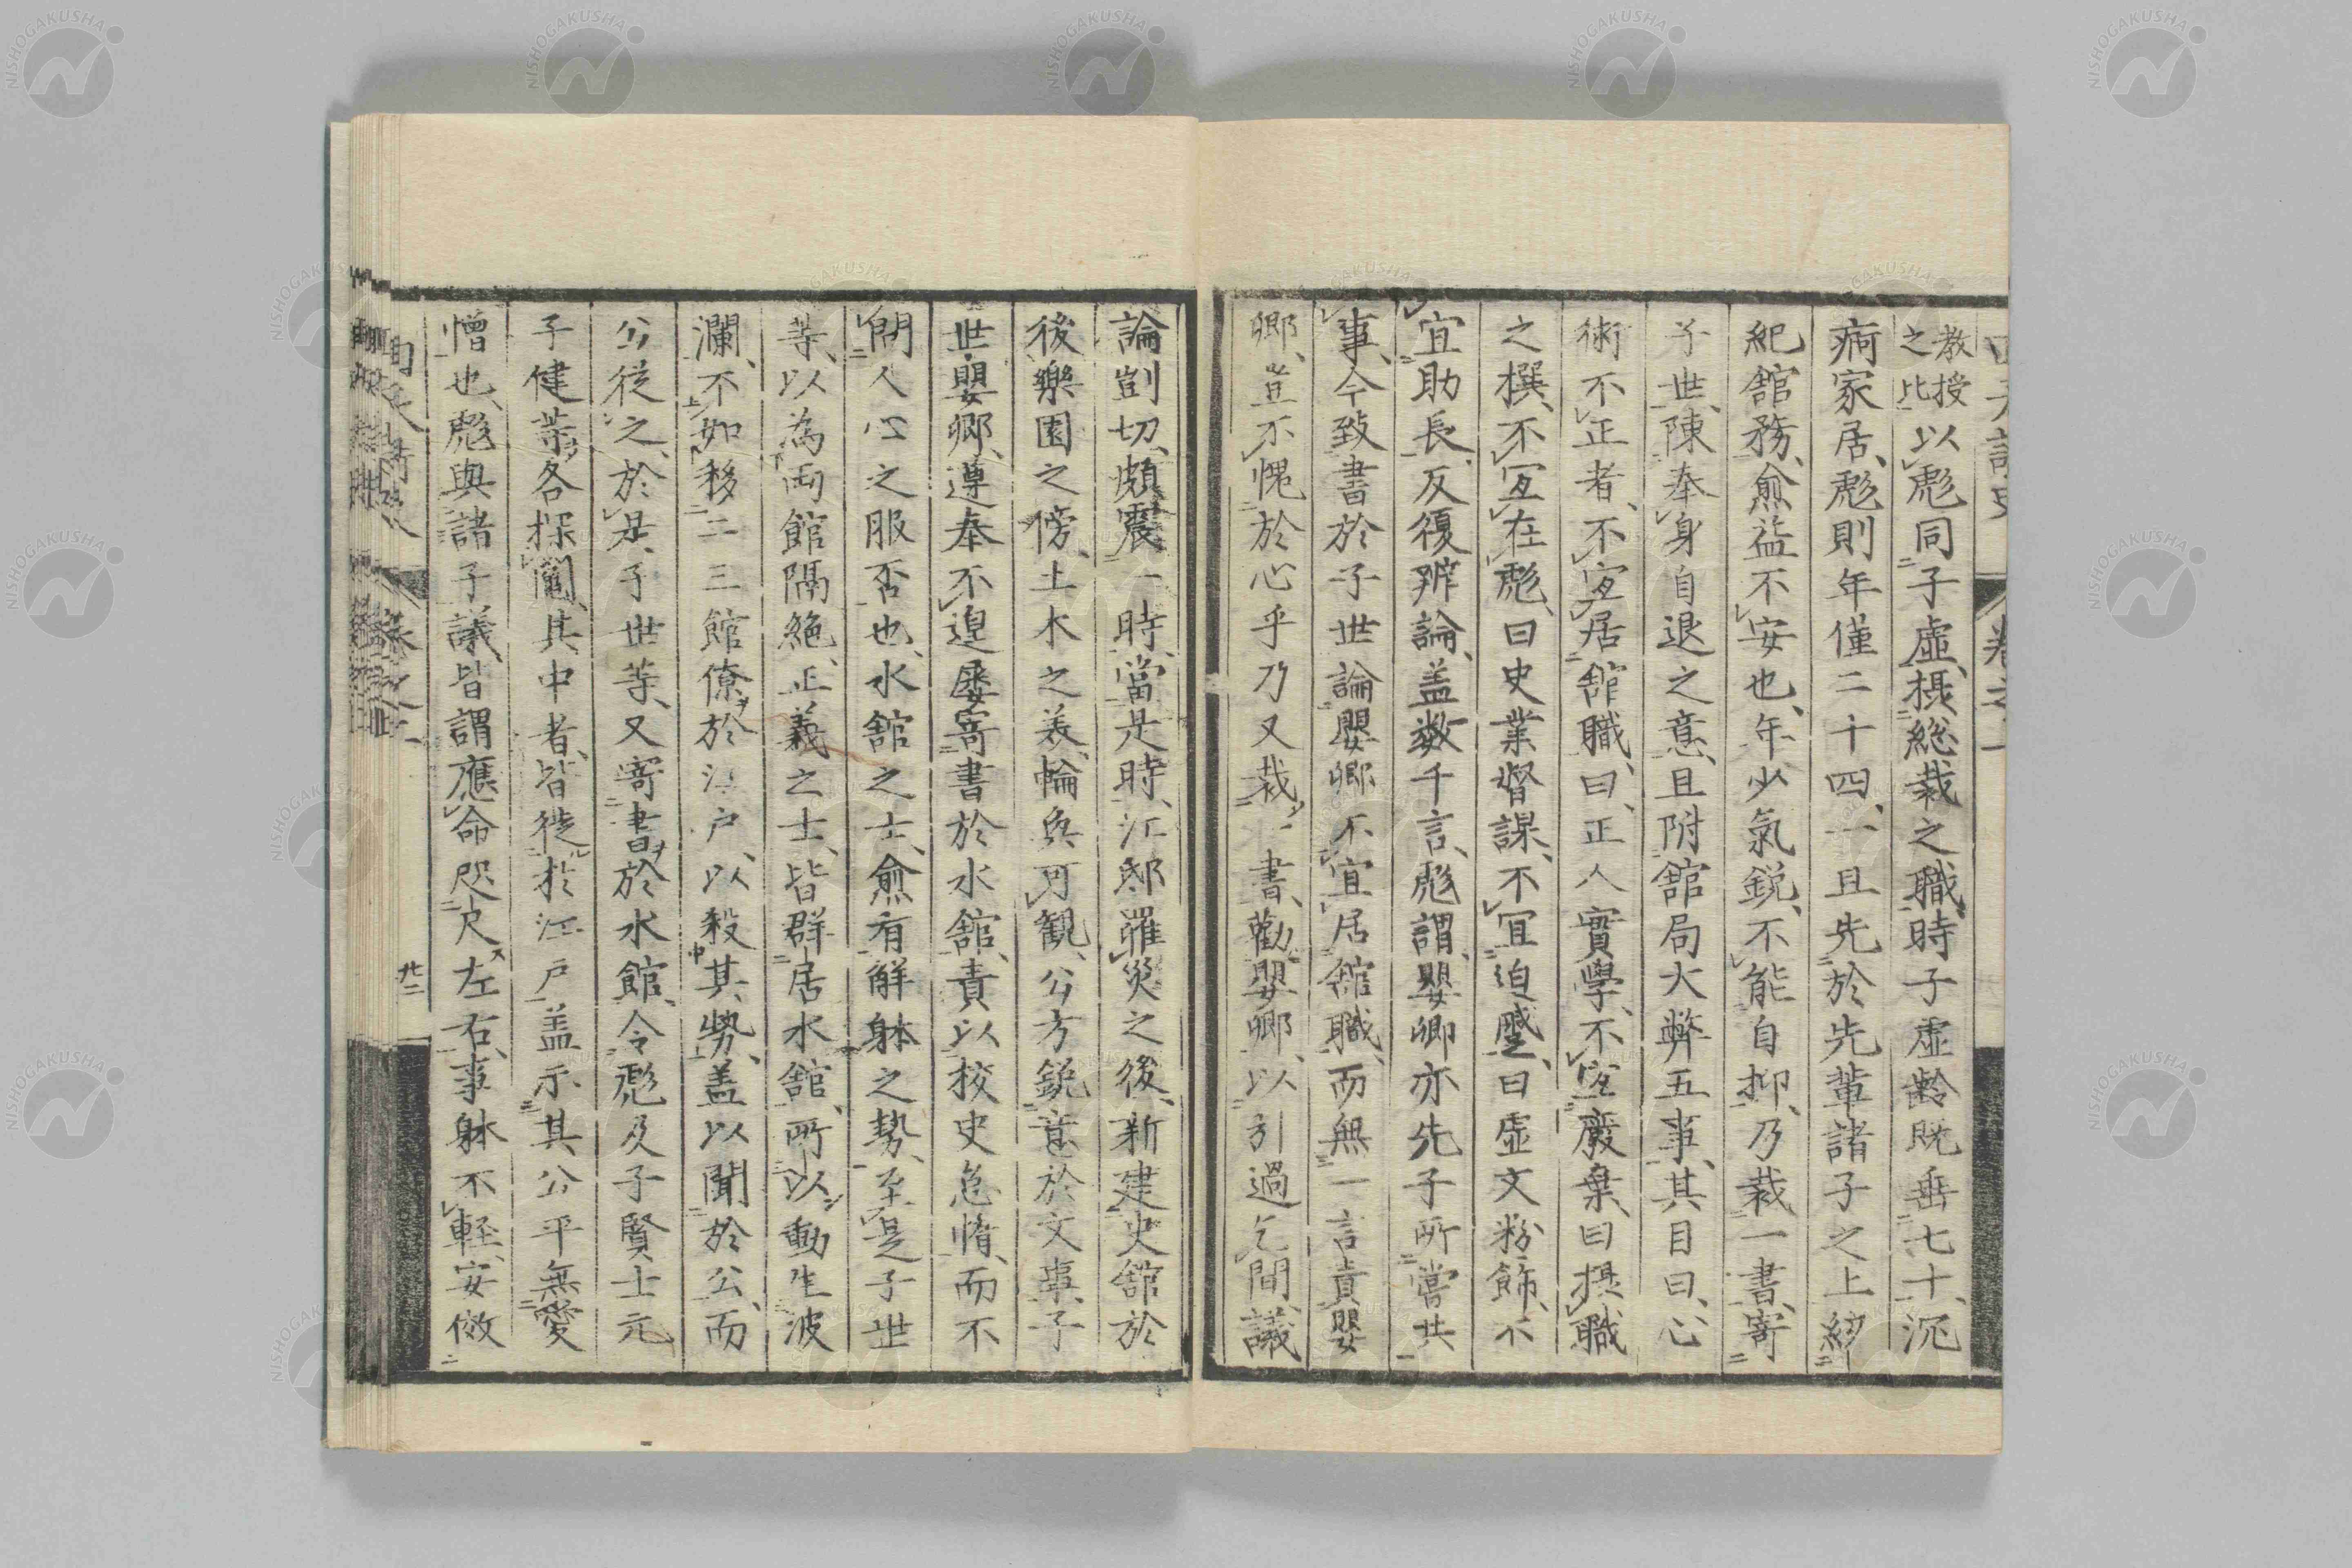 教授
之比以彪同子虛摂総裁之職時子虛齢既垂七十沉
痾家居彪則年僅二十四一旦先於先輩諸子之上綜
紀舘務愈益不安也年少氣鋭不能自抑乃裁一書寄
子世陳奉身自退之意且附舘局大弊五事其目曰心
術不正者不宜居舘職曰正人實學不宜廢棄曰摂職
之撰不宜在彪曰史業督課不宜迫蹙曰虛文粉飾不
宜助長反復辨論盖数千言彪謂嬰卿亦先子所嘗共
事今致書於子世論嬰卿不宜居舘職而無一言責嬰
卿豈不愧於心乎乃又裁一書勸嬰卿以引過乞間議
論剴切頗震一時當是時江邸罹災之後新建史舘於
後樂園之傍土木之美輪奐可観公方鋭意於文事子
世嬰卿遵奉不遑屡寄書於水舘責以校史怠惰而不
問人心之服否也水舘之士愈有觧躰之勢至是子世
等以為両館隔絶正義之士皆群居水舘所以動生波
瀾不如移二三館僚於江戸以殺其勢盖以聞於公而
公従之於是子世等又寄書於水館令彪及子賢士元
子健等各採鬮其中者皆徙於江戸盖示其公平無愛
憎也彪與諸子議皆謂應命咫尺左右事躰不輕安倣
卷之一
廿二